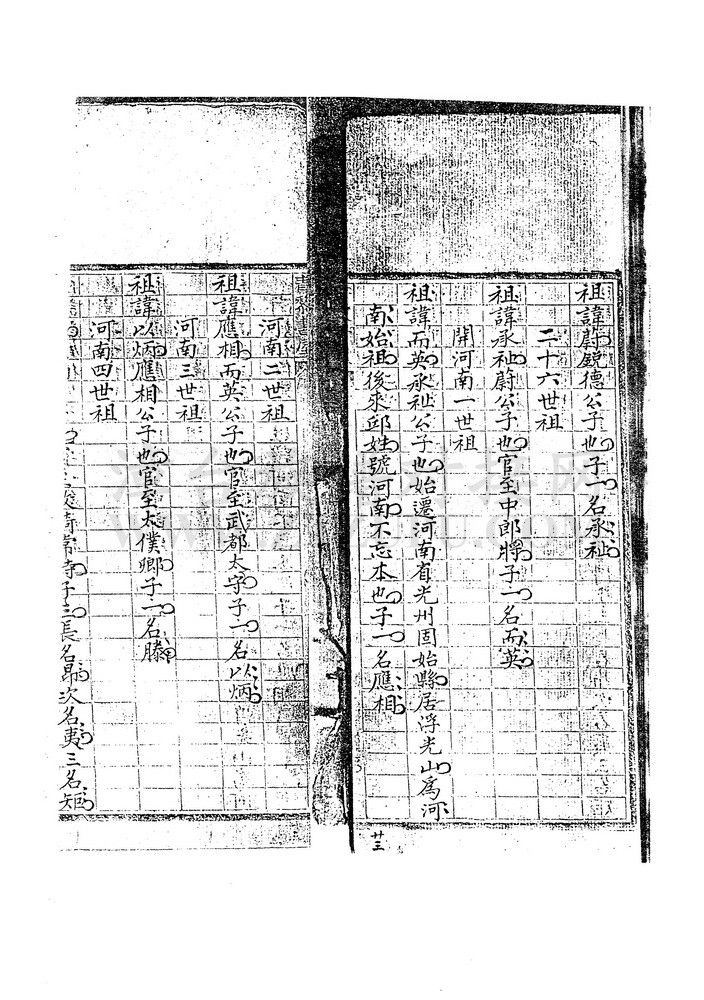 祖諱蔚銳德公子也子一名承祉
二十六世祖
祖諱承祉蔚公子也官至中郎將子一名而英
開河南一世祖
祖諱而英承祉公子也始遷河南省光州固始縣居浮光山為河
南始祖後來邱姓號河南不忘本也子一名應相
廿三
河南二世祖
祖諱應相而英公子也官至武都太守子一名以炳
河南三世祖
祖諱以炳應相公子也官至太僕卿子一名滕
河南四世祖
常侍子三長名昴次名夷三名矩